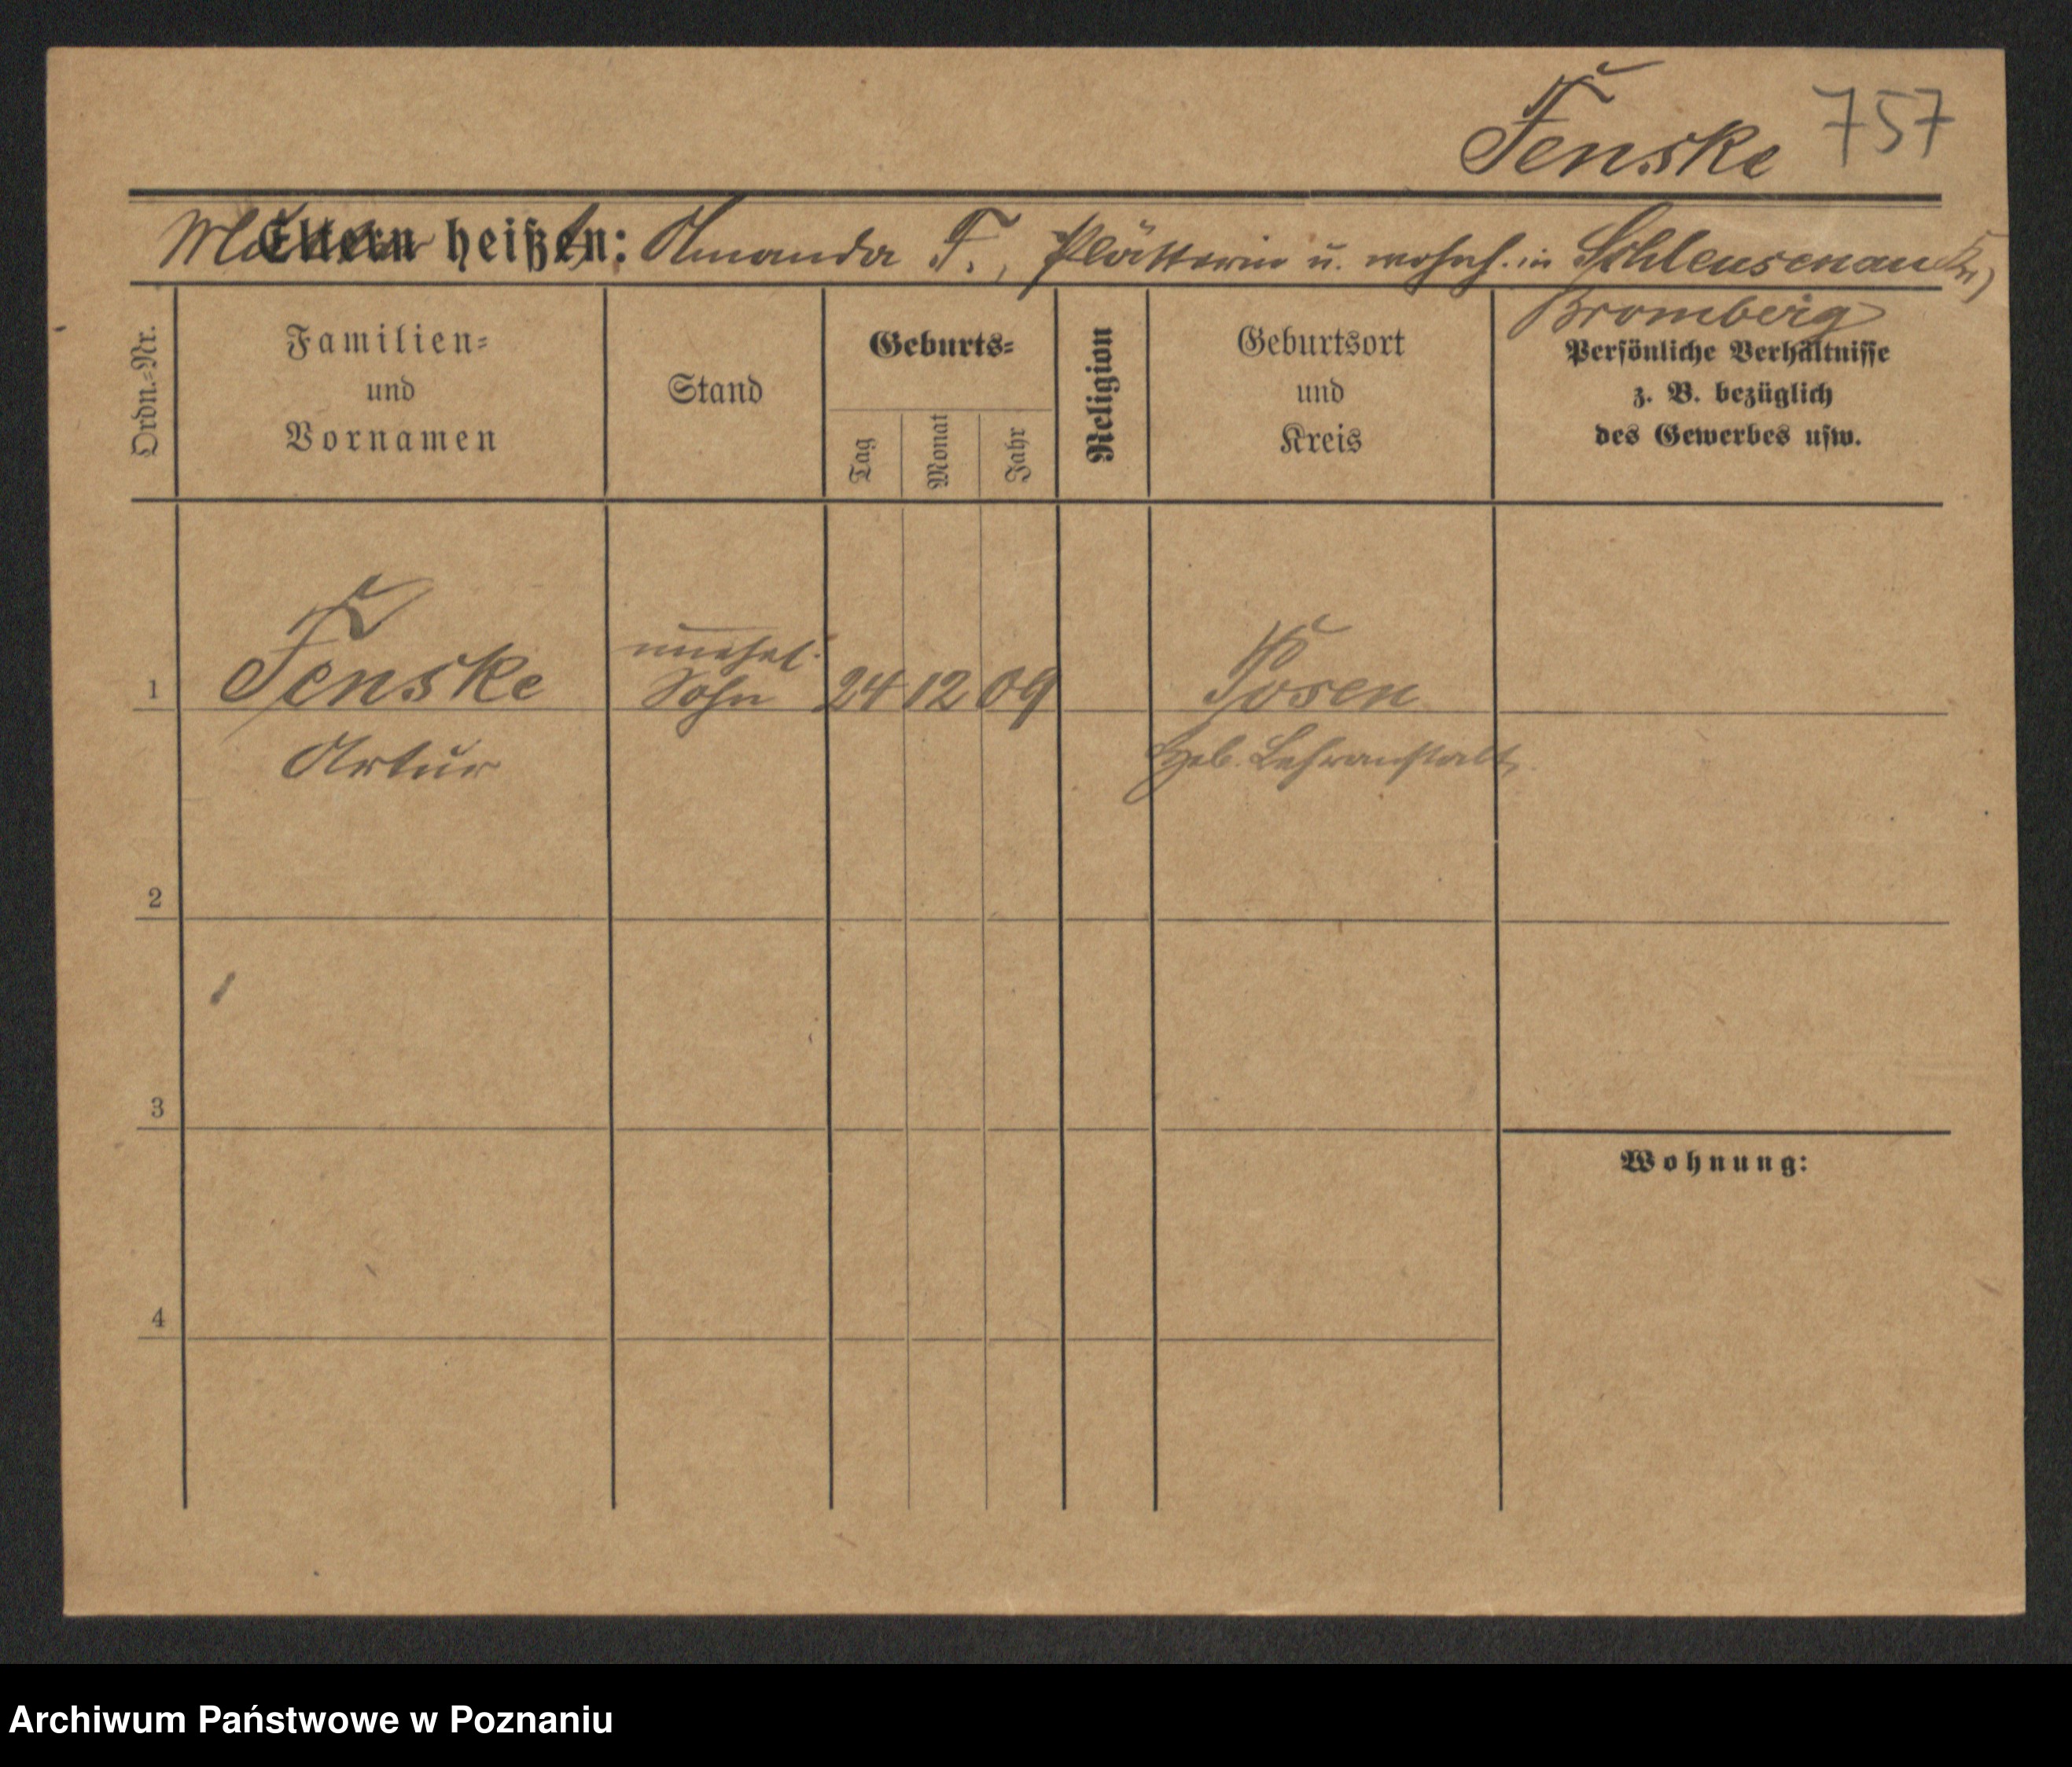 Fenske 757
Mutter heißt: Eltern heißen: Amanda F., Plätterin u. wohnh. in Schleusenau Kr.
Bromberg
Ordn.=Nr.
Familien=
und
Vornamen
Stand
Geburts=
Tag
Monat
Jahr
Religion
Geburtsort
und
Kreis
Persönliche Verhältnisse
z. B. bezüglich
des Gewerbes usw.
1 Fenske unehel. Sohn 24 12 09 Posen
Artur Heb. Lehranstalt.
2
3
Wohnung:
4
Archiwum Państwowe w Poznaniu